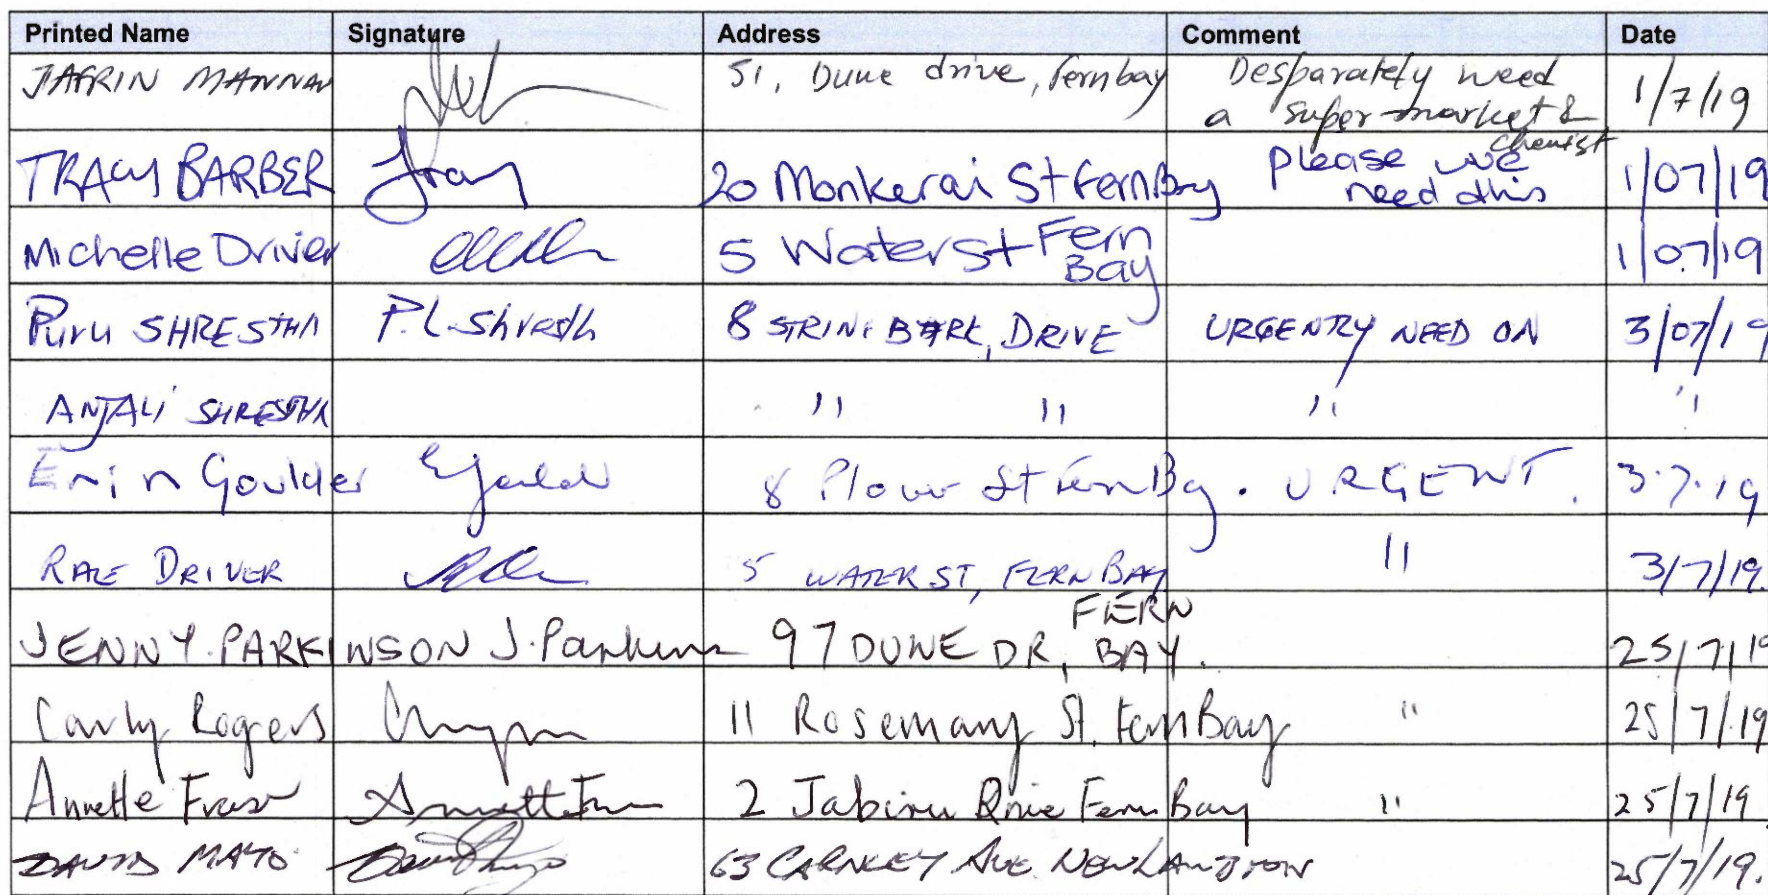 Printed Name Signature Address Comment Date
JAFRIN MANNAN 51, Dune drive, Fernbay Desparately need a super market & chemist 1/7/19
TRACY BARBER Tracy 20 Monkerai St Fern Bay please we need this 1/07/19
Michelle Driver 5 Water St Fern Bay 1/07/19
Puru SHRESTHA P.L.Shresth 8 STRINI BARK, DRIVE URGENTRY NEED ON 3/07/19
ANJALI SHRESTHA " " " "
Erin Goulder 8 Plover St Fern Bay. URGENT. 3.7.19
RAE DRIVER 5 WATER ST, FERN BAY " 3/7/19.
JENNY. PARKINSON J. Parkinson 97 DUNE DR, FERN BAY. 25/7/19
Carly Rogers 11 Rosemary St, Fern Bay " 25/7/19
Annette Fraser 2 Jabiru Drive Fern Bay " 25/7/19
DAVID MAYO 63 CARNLEY AVE NEW LAMBTON 25/7/19.